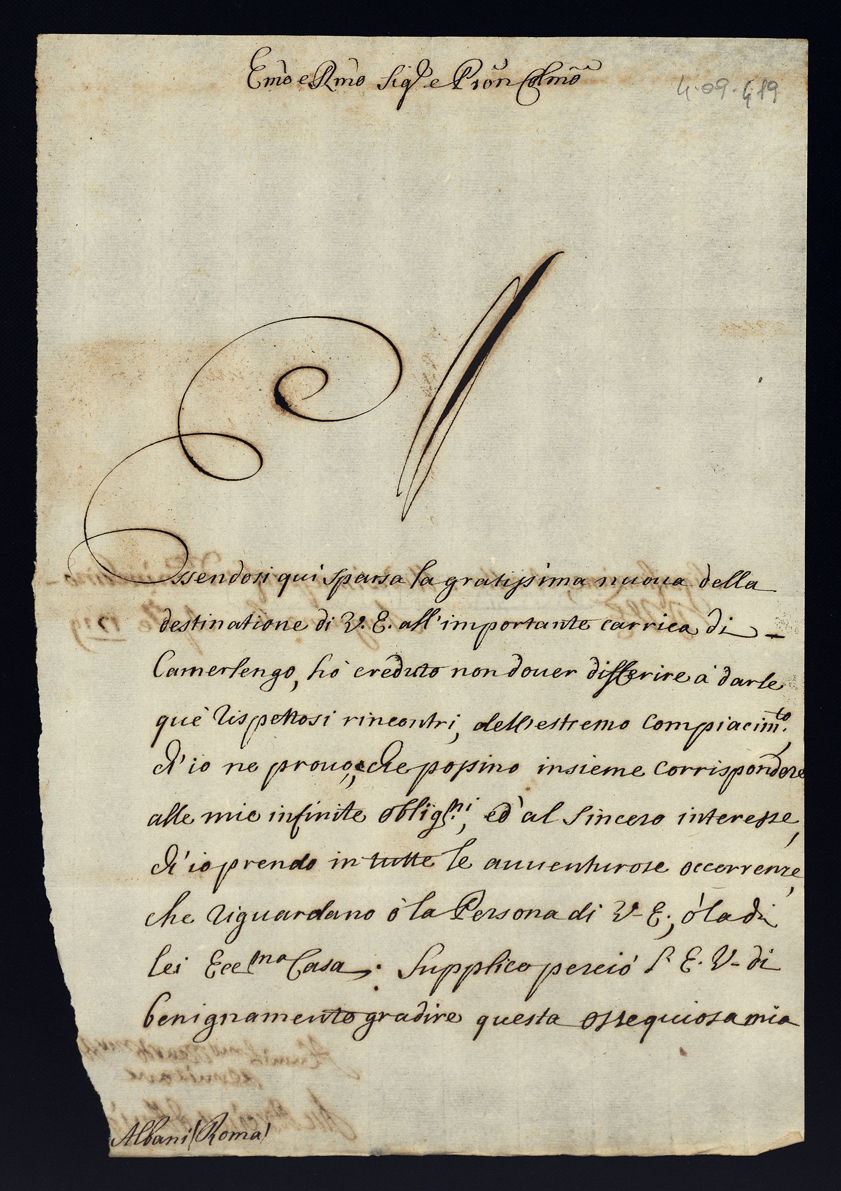 Emo e Rmo Sigr e Pron Colmo
4.09.419
Essendosi qui sparsa la gratissima nuova della
destinatione di V. E. all'importante carrica di
Camerlengo, hò creduto non dover differire à darle
què rispettosi rincontri, dell'estremo compiacimto,
ch'io ne provo, che possino insieme corrispondere
alle mie infinite obligni, ed' al sincero interesse,
ch'io prendo in tutte le avventurose occorrenze,
che riguardano ò la Persona di V. E., ò la di
lei Eccma Casa. Supplico perciò l'E. V. di
benignamente gradire questa ossequiosa mia
Albani (Roma)